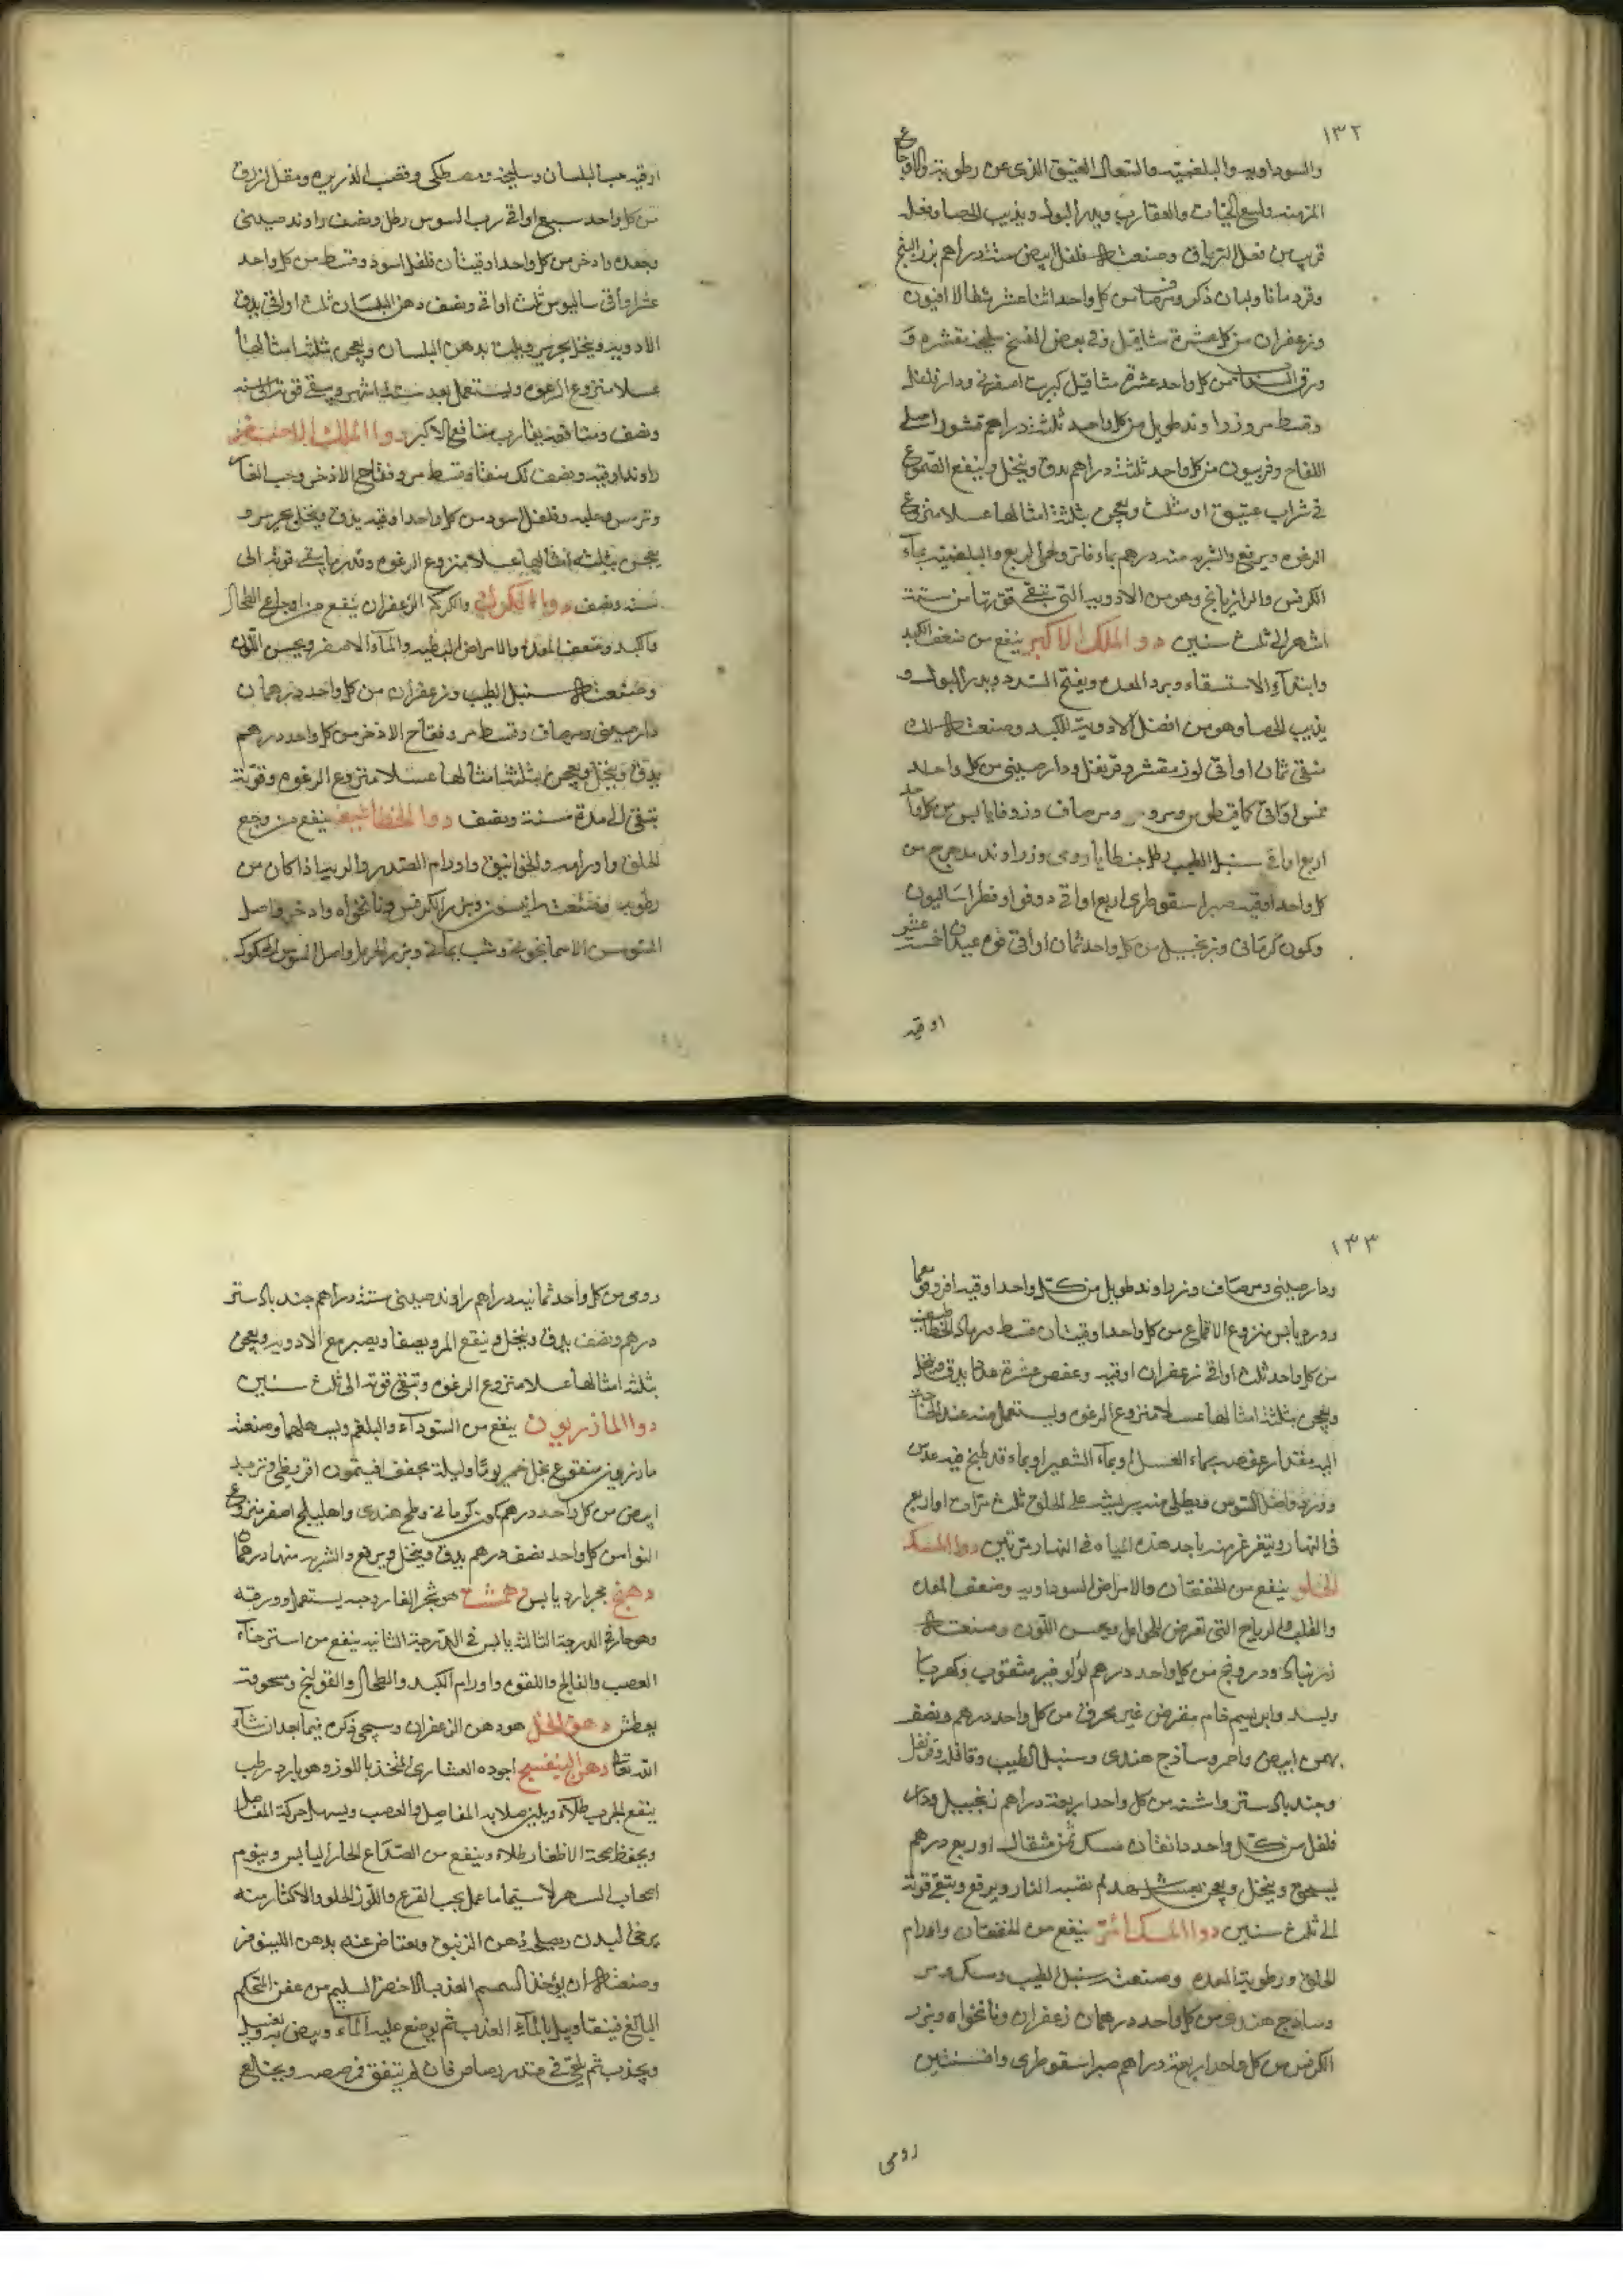 ١٣٢
والسوداويه والبلغميه والسعال العتيق الذى عن رطوبة والاوجاع
المزمنه ولسع الحيات والعقارب ويدر البول ويذيب الحصا وفعله
قريب من فعل الترياق وصنعته فلفل ابيض ستة دراهم بزر البنج
وقردمانا ولبان ذكر ومر صاف من كل واحد اثنا عشر مثقالا افيون
وزعفران من كل عشرة مثاقيل وفى بعض النسخ سليخه مقشره و
ورق من كل واحد عشرة مثاقيل كبريت اصفر ودار فلفل
وقسط مر وزراوند طويل من كل واحد ثلثة دراهم قشور اصل
اللفاح وفربيون من كل واحد ثلثة دراهم يدق وينخل وينقع الصموغ
فى شراب عتيق او مثلث ويعجن بثلثة امثالها عسلا منزوع
الرغوه ويرفع والشربه منه درهم بماء فاتر ولحمى الربع والبلغميه بماء
الكرفس والرازيانج وهو من الادويه التى تبقى قوتها من ستة
اشهر الى ثلث سنين دوا الملك الاكبر ينفع من ضعف الكبد
وابتداء الاستسقاء وبرد المعده ويفتح السدد ويدر البول و
يذيب الحصا وهو من افضل الادوية للكبد وصنعته لك
منقى ثمان اواقى لوز مقشر وقرنفل ودارصينى من كل واحد
خمس اواقى كمافيطوس ومر صاف وزوفا يابس من كل واحد
اربع اواقى سنبل الطيب رطل جنطيانا رومى وزراوند مدحرج من
كل واحد اوقيه صبر اسقوطرى اربع اواقى دوقو او فطراساليون
وكمون كرمانى وزنجبيل من كل واحد ثمان اواقى فوه عيدان خمسة عشر
اوقيه
اوقيه حب البلسان وسليخه ومصطكى وقصب الذريره ومقل ازرق
من كل واحد سبع اواقى رب السوس رطل ونصف راوند صينى
وجعده واذخر من كل واحد اوقيتان فلفل اسود وقسط من كل واحد
عشر اواقى ساليوس ثلث اواقى ونصف دهن البلسان ثلث اواقى يدق
الادويه وينخل بحرير ويلت بدهن البلسان ويعجن بثلثة امثالها
عسلا منزوع الرغوه ويستعمل بعد ستة اشهر ويبقى قوته الى سنه
ونصف ومنافعه يقارب منافع الاكبر دوا الملك الاصغر
راوند اوقيه ونصف لك منقاه وقسط مر وفقاح الاذخر وحب الغار
وترمس وحلبه وفلفل اسود من كل واحد اوقيه يدق وينخل بحرير و
يعجن بثلثة امثالها عسلا منزوع الرغوه وقدر ما يبقى قوته الى
سنه ونصف دوا الكركم والكركم الزعفران ينفع من اوجاع الطحال
والكبد وضعف المعدة والامراض البطيه والماء الاصفر ويحسن اللون
وصنعته سنبل الطيب وزعفران من كل واحد درهمان
دارصينى ومر صاف وقسط مر وفقاح الاذخر من كل واحد درهم
يدق وينخل ويعجن بثلثة امثالها عسلا منزوع الرغوه وقوته
تبقى الى مدة سنة ونصف دوا الخطاطيف ينفع من وجع
الحلق واورامه والخوانيق واورام الصدر والربو اذا كان من
رطوبه وصنعته انيسون وبزر الكرفس ونانخواه واذخر واصل
السوسن الاسمانجونى وشب يمانى وبزر الحرمل واصل السوس المحكوك
١٣٣
ودارصينى ومر صاف وزراوند طويل من كل واحد اوقيه
وورد يابس منزوع الاقماع من كل واحد اوقيتان قسط مر رماد الخطاطيف
من كل واحد ثلث اواقى زعفران اوقيه وعفص عشرة عددا يدق وينخل
ويعجن بثلثة امثالها عسلا منزوع الرغوه ويستعمل منه عند الحاجة
اليه مقدار عفصه بماء العسل او بماء الشعير او بماء قد طبخ فيه عدس
وورد واصل السوس ويطلى منه بريشه على الحلق ثلث مرات او اربع
فى النهار ويتغرغر منه باحد هذه المياه فى النهار مرتين دوا المسك
الحلو ينفع من الخفقان والامراض السوداويه وضعف المعده
والقلب والرياح التى تعرض للحوامل ويحسن اللون وصنعته
زرنباد ودرونج من كل واحد درهم لؤلؤ غير مثقوب وكهربا
وبسد وابريسم خام مقرض غير محرق من كل واحد درهم ونصف
بهمن ابيض واحمر وساذج هندى وسنبل الطيب وقاقله وقرنفل
وجندبادستر واشنه من كل واحد اربعة دراهم زنجبيل ودار
فلفل من كل واحد دانقان مسك ثمن مثقال او ربع درهم
يسحق وينخل ويعجن بعسل لم تصبه النار ويرفع ويبقى قوته
الى ثلث سنين دوا المسك المر ينفع من الخفقان واورام
الحلق ورطوبة المعده وصنعته سنبل الطيب ومسك ومر
وساذج هندى من كل واحد درهمان زعفران ونانخواه وبزر
الكرفس من كل واحد اربعة دراهم صبر اسقوطرى وافسنتين
رومى
رومى من كل واحد ثمانيه دراهم راوند صينى ستة دراهم جندبادستر
درهم ونصف يدق وينخل وينقع المر ويصفا ويصير مع الادويه ويعجن
بثلثه امثالها عسلا منزوع الرغوه وتبقى قوته الى ثلث سنين
دوا المازريون ينفع من السوداء والبلغم ويسهلهما وصنعته
مازريون منقوع بخل خمر يوما وليلة مجفف افيثمون اقريطى وتربد
ابيض من كل واحد درهم كمون كرمانى وملح هندى واهليلج اصفر منزوع
النوا من كل واحد نصف درهم يدق وينخل ويرفع والشربه منها درهما
دهنج حجر بارد يابس دهمشت هو شجر الغار وحبه يستعمل وورقه
وهو حار فى الدرجة الثالثه يابس فى الدرجة الثانيه ينفع من استرخاء
العصب والفالج واللقوه واورام الكبد والطحال والقولنج وسحوقه
يعطش دهن الخل هو دهن الزعفران وسيجى ذكره فيما بعد ان شاء
الله تعالى دهن البنفسج اجوده العشارى المتخذ باللوز وهو بارد رطب
ينفع الجرب طلاء ويلين صلابه المفاصل والعصب ويسهل حركة المفاصل
ويحفظ صحة الاظفار طلاء وينفع من الصداع الحار اليابس وينوم
اصحاب السهر لا سيما ما عمل بحب القرع واللوز الحلو والاكثار منه
يرخى البدن ويصلحه دهن الزنبق ويعتاض عنه بدهن اللينوفر
وصنعته ان يؤخذ السمسم العذب الاخضر السليم من عفن المحكم
البالغ فينقا ويبل بالماء العذب ثم يوضع عليه الماء
ويجذب ثم يلقى فى قدر رصاص فان لم يتفق